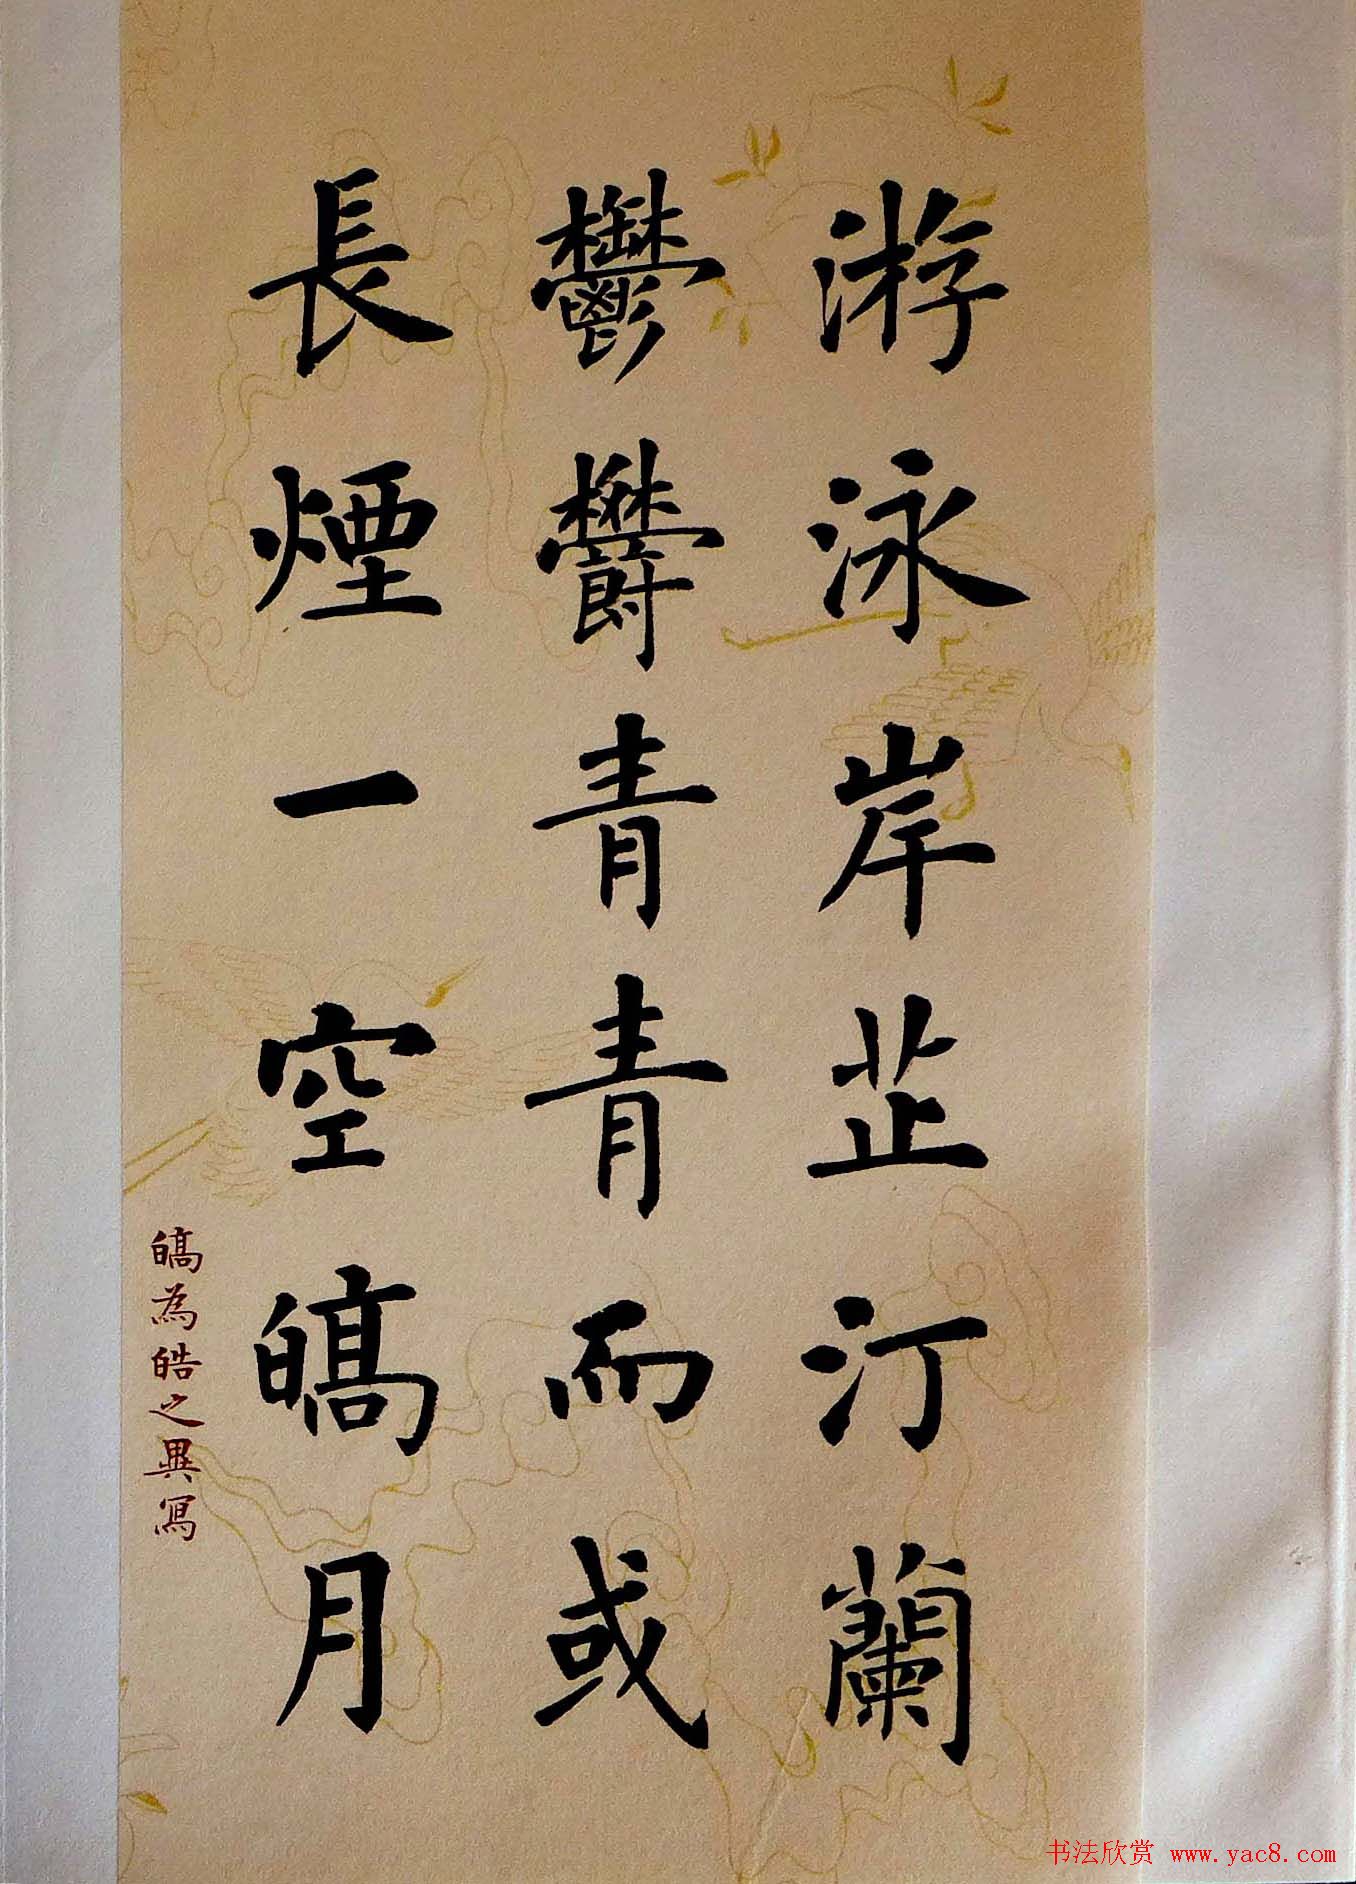 游泳岸芷汀蘭
鬱欝青青而或
長煙一空皜月
皜為皓之異寫
书法欣赏 www.yac8.com